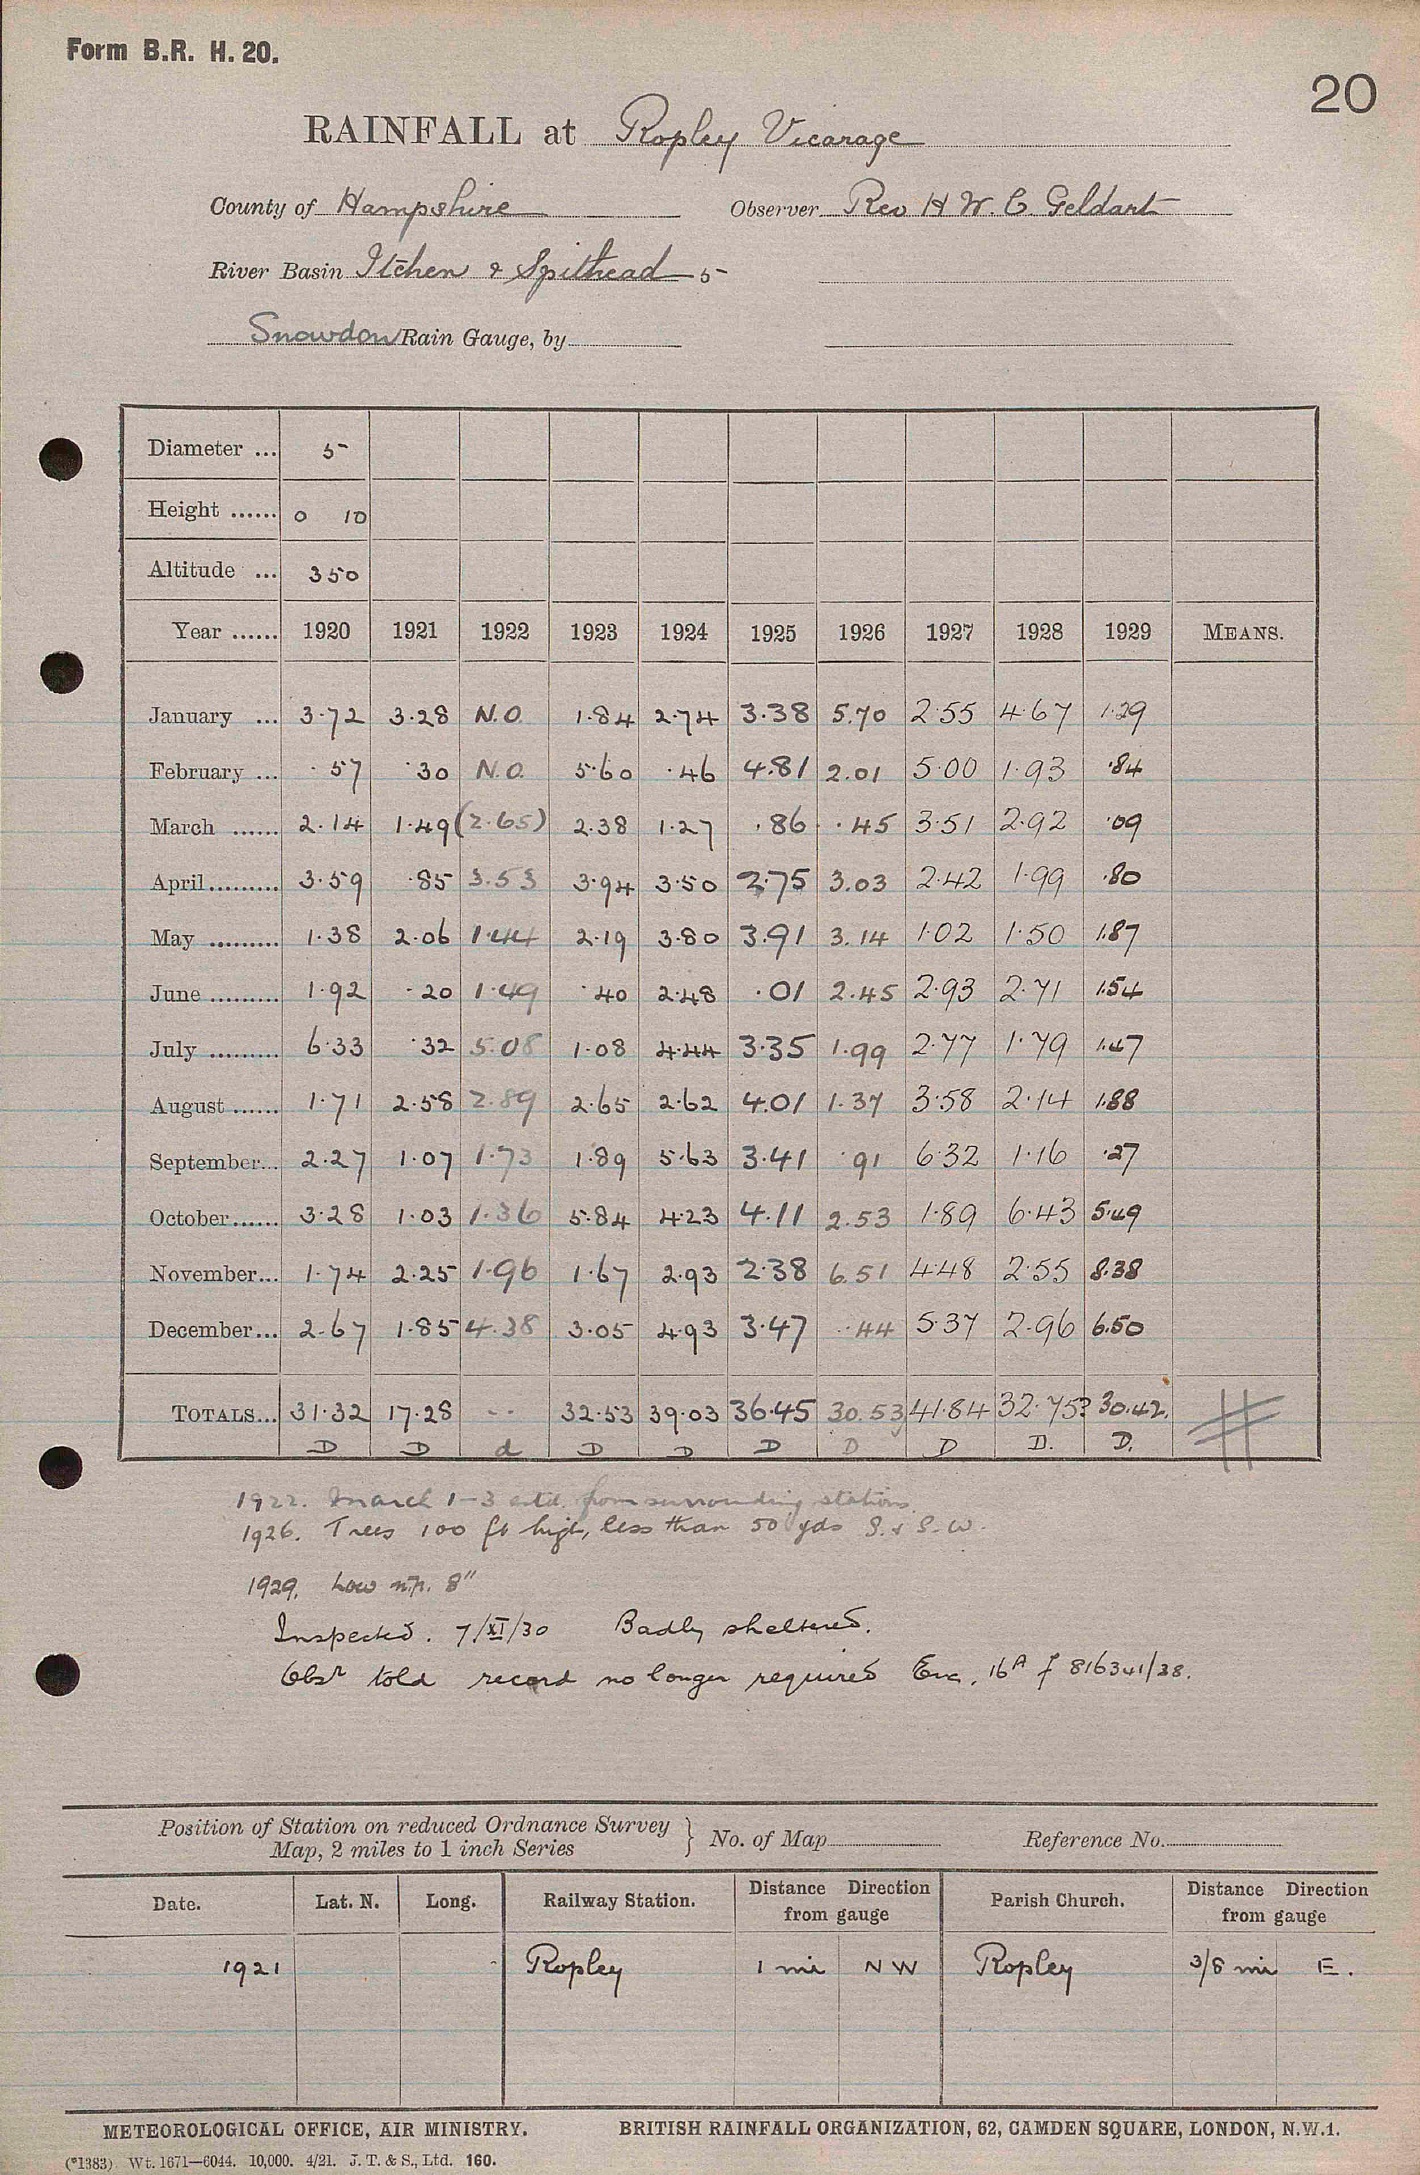 Form B.R. H. 20.
20
RAINFALL at Ropley Vicarage
County of Hampshire Observer Rev H W. C. Geldart
River Basin Itchen & Spithead 5
Snowdon Rain Gauge, by
Diameter ... 5
Height ...... 0 10
Altitude ... 350
Year ...... 1920 1921 1922 1923 1924 1925 1926 1927 1928 1929 MEANS.
January ... 3.72 3.28 N.O. 1.84 2.74 3.38 5.70 2.55 4.67 1.29
February ... .57 .30 N.O. 5.60 .46 4.81 2.01 5.00 1.93 .84
March ...... 2.14 1.49 (2.65) 2.38 1.27 .86 .45 3.51 2.92 .09
April ......... 3.59 .85 3.53 3.94 3.50 2.75 3.03 2.42 1.99 .80
May ......... 1.38 2.06 1.44 2.19 3.80 3.91 3.14 1.02 1.50 1.87
June ......... 1.92 .20 1.49 .40 2.48 .01 2.45 2.93 2.71 1.54
July ......... 6.33 .32 5.08 1.08 4.44 3.35 1.99 2.77 1.79 1.47
August ...... 1.71 2.58 2.89 2.65 2.62 4.01 1.37 3.58 2.14 1.88
September... 2.27 1.07 1.73 1.89 5.63 3.41 .91 6.32 1.16 .27
October...... 3.28 1.03 1.36 5.84 4.23 4.11 2.53 1.89 6.43 5.49
November... 1.74 2.25 1.96 1.67 2.93 2.38 6.51 4.48 2.55 8.38
December... 2.67 1.85 4.38 3.05 4.93 3.47 .44 5.37 2.96 6.50
TOTALS... 31.32 17.28 -- 32.53 39.03 36.45 30.53 41.84 32.75? 30.42.
D D d D D D D D D. D.
1922. March 1-3 estd. from surrounding stations.
1926. Trees 100 ft high, less than 50 yds S. & S.W.
1929. Low 8"
Inspected. 7/XI/30 Badly sheltered.
Obsr told record no longer required Enc. 16A f 816341/38.
Position of Station on reduced Ordnance Survey
Map, 2 miles to 1 inch Series } No. of Map Reference No.
Date. Lat. N. Long. Railway Station. Distance Direction from gauge Parish Church. Distance Direction from gauge
1921 Ropley 1 mi NW Ropley 3/8 mi E.
METEOROLOGICAL OFFICE, AIR MINISTRY. BRITISH RAINFALL ORGANIZATION, 62, CAMDEN SQUARE, LONDON, N.W.1.
(*1383) Wt. 1671—6044. 10,000. 4/21. J. T. & S., Ltd. 160.